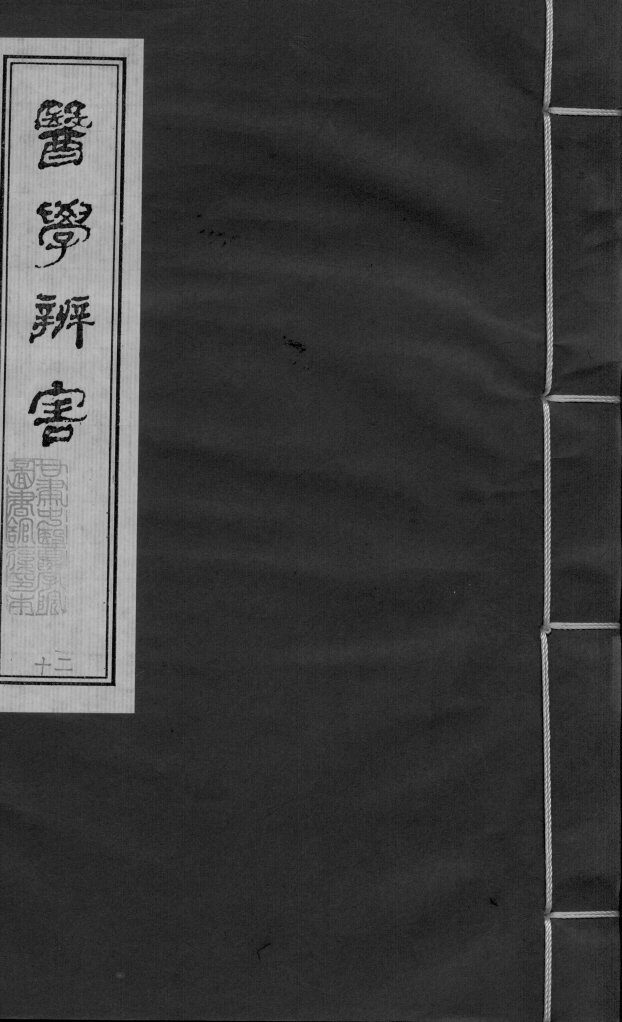 醫學辨害
甘肅中醫學院
圖書館藏書章
十二